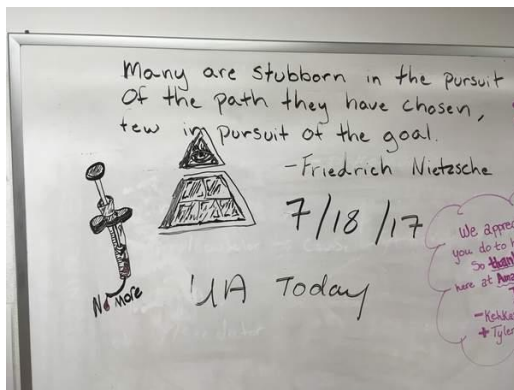 Many are stubborn in the pursuit
Of the path they have chosen,
few in pursuit of the goal.
-Friedrich Nietzsche
7/18/17
UA Today
No more
We apprec
you do to h
So thank
here at Ama
+ Tyler